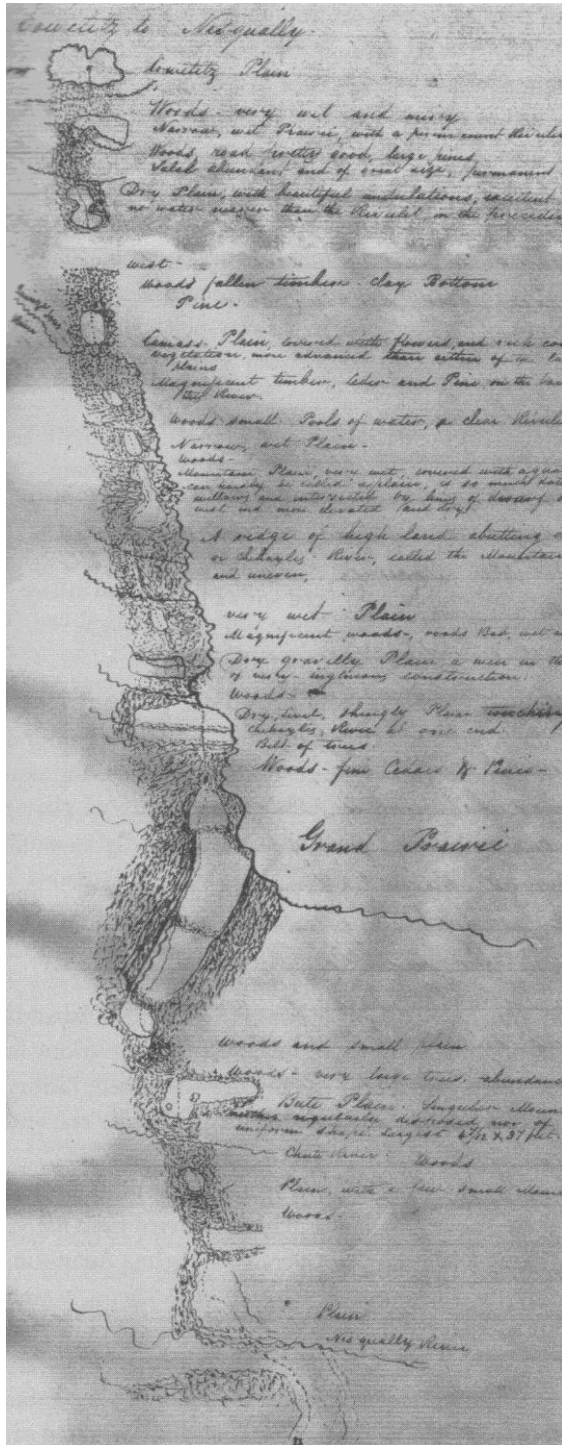 Cowelitz to Nisqually.
Cowelitz Plain
Woods - very wet and miry
Narrow, wet Prairie, with a permanent Rivulet
Woods, road pretty good, large pines
Salal abundant and of great size, permanent
Dry Plain, with beautiful undulations, excellent
no water nearer than the Rivulet in the preceding
west -
Woods fallen timber - clay Bottom
Pine -
River
Camass Plain, covered with flowers, and rich
vegetation, more advanced than either of the
plains
Magnificent timber, Ceder and Pine, on the
the River
Woods small Pools of water, a clear Rivulet
Narrow, wet Plain -
Woods -
Mountain Plain, very wet, covered with
can hardly be called a plain, is so much
willows and intersected by lines of dwarf
west end more elevated and dry.
A ridge of high land abutting
or Chehaylis River, called the Mountain
and uneven,
very wet Plain
Magnificent woods -, roads Bad, wet
Dry gravelly Plain a weir in the
of very - ingenious construction.
Woods -
Dry, level, shingly Plain touching
Chehaylis River at one end
Belt of trees
Woods - fine Cedars & Pines -
Grand Prairie
Woods and small plain
Woods - very large trees, abundance
Bute Plain. Singular
neither regularly disposed nor of
uniform shape. largest & 37 feet.
Chute River - Woods
Plain, with a few small
Woods -
Plain
Nisqually River